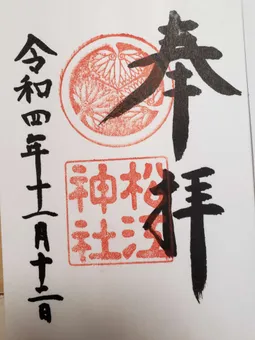 奉拝
松江神社
令和四年十一月十二日